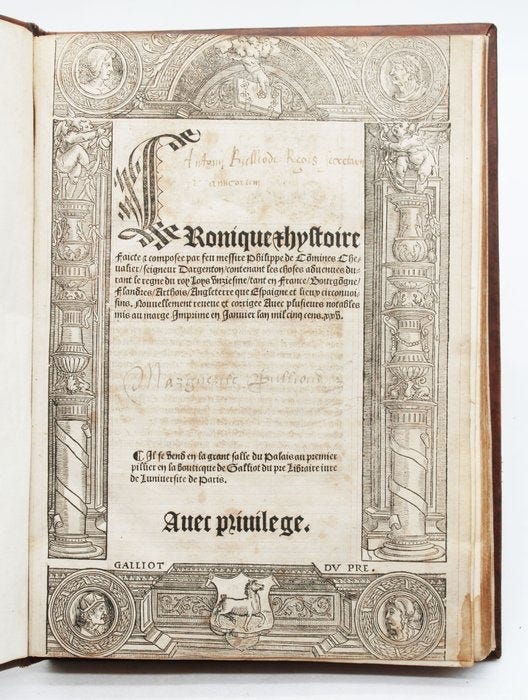 Antonij Bulliode Regij secretarij
et amicorum
CRonique & hystoire
Faicte & composee par feu messire Philippe de Cõmines Che-
ualier/seigneur Dargenton/contenant les choses aduenues du-
rant le regne du roy Loys vnziesme/tant en France/Bourgõgne/
Flandres/Arthois/Angleterre que Espaigne et lieux circonuoi-
sins. Nouuellement reueue et corrigee Auec plusieurs notables
mis au marge Imprime en Januier lan mil cinq cens. xxv.
Marguerite Bulliond
¶ Il se vend en la grant salle du Palais au premier
pillier en la boutique de Galliot du pre Libraire iure
de Luniuersite de Paris.
Auec priuilege.
GALLIOT DV PRE.